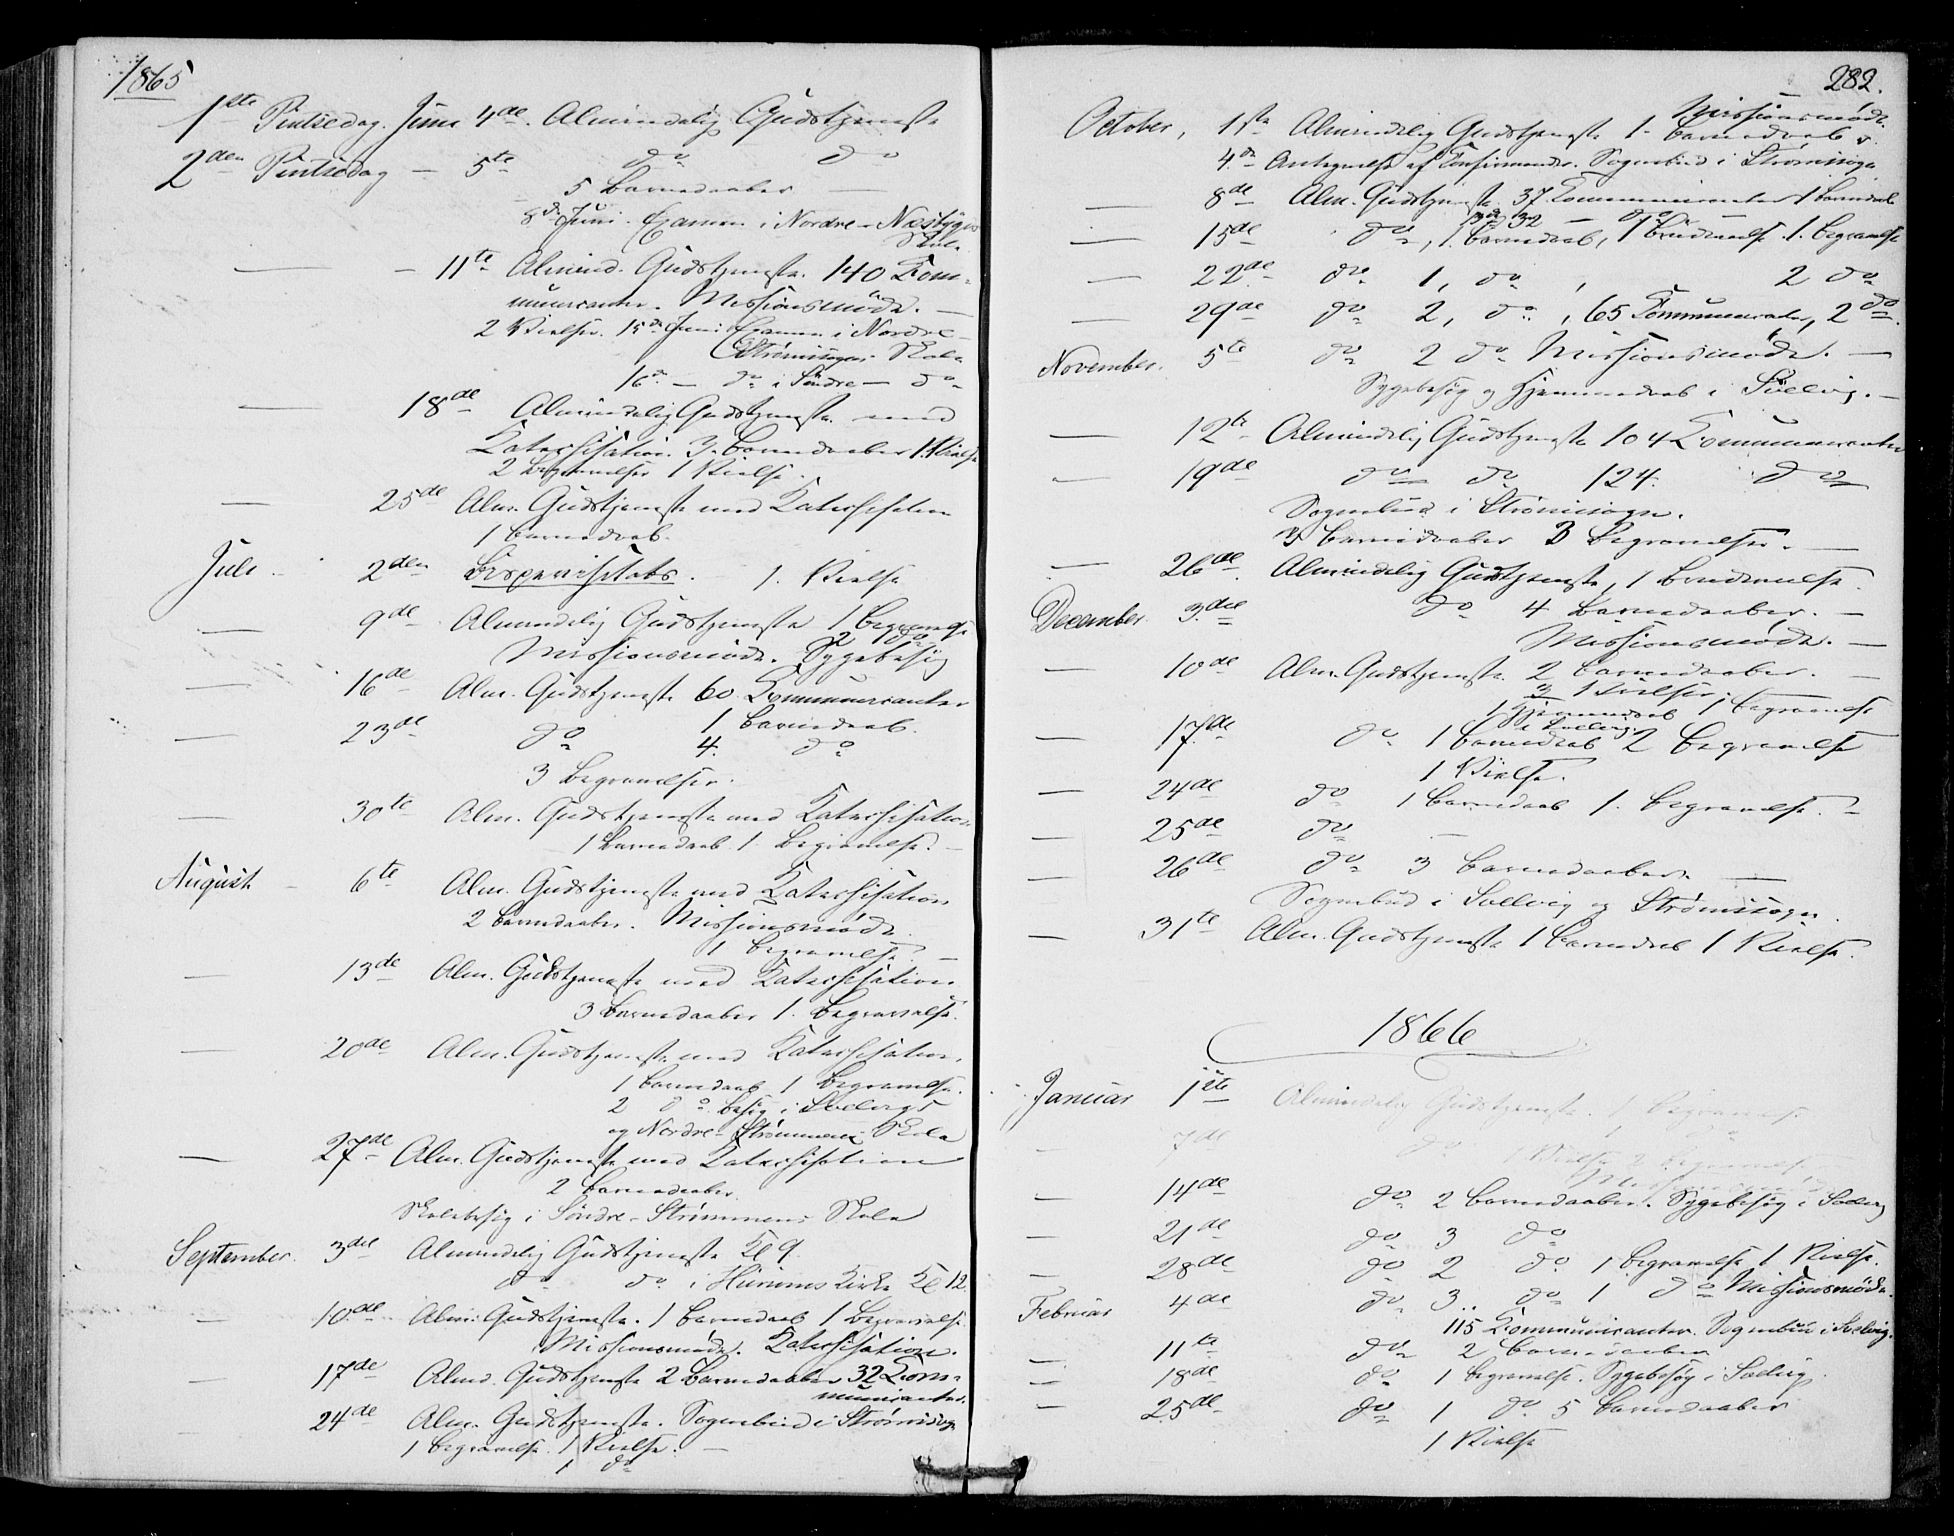 1865
1ste Pintsedag. Juni 4de. Almindelig Gudstjeneste
2den Pintsedag — 5te do do
5 Barnedaaber —
8de Juni. Examen i Nordre-
Skole
— — 11te Almind. Gudstjeneste. 140 Kom-
municanter. Missionsmöde. —
2 Vielser. 15de Juni Examen i Nordre-
Strömsogns Skole
16de — do i Söndre — do
— 18de Almindelig Gudstjeneste med
Katechisation. 3 Barnedaaber 1 Vielse
2 Begravelser 1 Vielse.
— 25de Alm. Gudstjeneste med Katechisation
1 Barnedaab.
Juli — 2den Bispevisitats. 1. Vielse
— 9de Almindelig Gudstjeneste 1 Begravelse
2 do
Missionsmöde. Sygebesög
— 16de Alm. Gudstjeneste 60 Kommunicanter
1 Barnedaab.
— 23de do 4. do
3 Begravelser.
— 30te Alm. Gudstjeneste med Katechisation
1 Barnedaab 1. Begravelse. —
August — 6te Alm. Gudstjeneste med Katechisation
2 Barnedaaber. Missionsmöde
1 Begravelse. —
— 13de Alm. Gudstjeneste med Katechisation
3 Barnedaaber 1. Begravelse.
— 20de Alm. Gudstjeneste med Katechisation.
1 Barnedaab 1 Begravelse.
2 do. Besög i Svelvigs
og Nordre-Strömmens Skole
— 27de Alm. Gudstjeneste med Katechisation
2 Barnedaaber
Skolebesög i Söndre-Strömmens Skole
September. 3die Almindelig Gudstjeneste Kl 9.
do do i Hurums Kirke Kl 12.
— 10de Alm. Gudstjeneste. 1 Barnedaab 1 Begravelse
Missionsmöde. Katechisation.
— 17de Almd. Gudstjeneste 2 Barnedaaber 32 Kom-
municanter.
24de Alm. Gudstjeneste. Sognebud i Strömsogn
1 Begravelse. 1 Vielse. —
1 do
282.
Missionsmöde.
October, 1ste Almindelig Gudstjeneste 1. Barnedaab
4de Antegnelse af Konfirmander. Sognebud i Strömsogn
— 8de Alm. Gudstjeneste 37 Kommunicanter 1 Barnedaab
32 — do —
— 15de do, 1 Barnedaab, 1 Brudevielse. 1. Begravelse
— 22de do 1, do, 2 do
— 29de do 2, do, 65 Kommunicanter, 2 do.
November. 5te do 2 do Missionsmöde. —
Sygebesög og Hjemmedaab i Svelvig. —
— 12te Almindelig Gudstjeneste 104 Kommunicanter
— 19de do do 124. do
Sognebud i Strömsogn.
3 Barnedaaber 3 Begravelser. —
— 26de Almindelig Gudstjeneste, 1 Brudevielse.
December 3die do 4 Barnedaaber. —
Missionsmöde. —
— 10de Alm. Gudstjeneste 2 Barnedaaber. —
1 Vielser
1 Hjemmedaab 1 Begravelse
i Svelvig.
— 17de do 1 Barnedaab 2 Begravelse
1 Vielse.
— 24de do 1 Barnedaab 1. Begravelse. —
— 25de do —
— 26de do 3 Barnedaaber —
Sognebud i Svelvig og Strömsogn.
— 31te Alm. Gudstjeneste 1 Barnedaab 1 Vielse.
1866
Januar 1ste Almindelig Gudstjeneste. 1 Begravelse
— 7de do 1 do
1 Vielse 2 Begravelse
Missionsmöde
— 14de do 2 Barnedaaber. Sygebesög i Svelvig
— 21de do 3 do
— 28de do 2 do 1 Begravelse 1 Vielse.
Februar 4de do 3 do 1 do Missionsmöde.
115 Kommunicanter. Sognebud i Svelvig.
— 11te do 2 Barnedaaber
— 18de do 1 Begravelse. Sygebesög i Svelvig.
— 25de do 1 do 5 Barnedaaber
1 Vielse